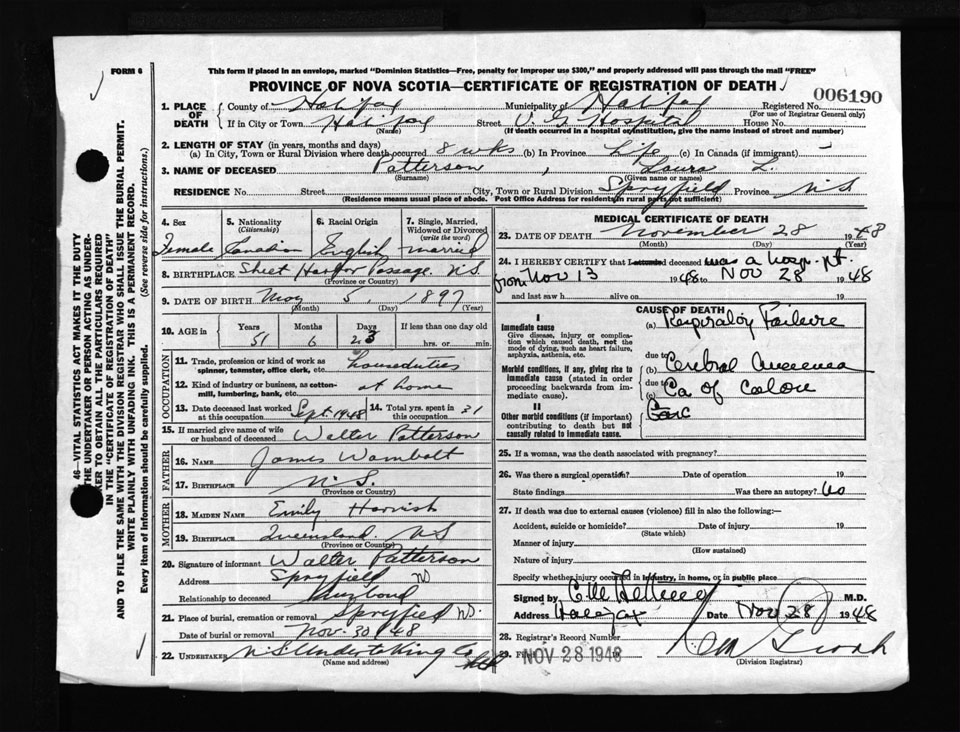 FORM 6
This form if placed in an envelope, marked "Dominion Statistics—Free, penalty for improper use $300," and properly addressed will pass through the mail "FREE"
PROVINCE OF NOVA SCOTIA—CERTIFICATE OF REGISTRATION OF DEATH
006190
1. PLACE OF DEATH
County of Halifax Municipality of Halifax Registered No.
(For use of Registrar General only)
If in City or Town Halifax Street V. G. Hospital House No.
(Name) (If death occurred in a hospital or institution, give the name instead of street and number)
2. LENGTH OF STAY (in years, months and days)
(a) In City, Town or Rural Division where death occurred 8 wks (b) In Province Life (c) In Canada (if immigrant) —
3. NAME OF DECEASED Patterson, Laura L.
(Surname) (Given name or names)
RESIDENCE No. Street City, Town or Rural Division Spryfield Province N.S
(Residence means usual place of abode. Post Office Address for residents in rural parts not sufficient)
4. Sex 5. Nationality (Citizenship) 6. Racial Origin 7. Single, Married, Widowed or Divorced (write the word)
Female Canadian English married
8. BIRTHPLACE Sheet Harbor Passage. N.S.
(Province or Country)
9. DATE OF BIRTH May 5, 1897
(Month) (Day) (Year)
10. AGE in Years Months Days If less than one day old
51 6 23 hrs. or min.
OCCUPATION
11. Trade, profession or kind of work as spinner, teamster, office clerk, etc. housduties
12. Kind of industry or business, as cotton-mill, lumbering, bank, etc. at home
13. Date deceased last worked at this occupation Sept. 1948 14. Total yrs. spent in this occupation 31
15. If married give name of wife or husband of deceased Walter Patterson
FATHER
16. NAME James Wambolt
17. BIRTHPLACE N.S.
(Province or Country)
MOTHER
18. MAIDEN NAME Emily
19. BIRTHPLACE Queensland. N.S
(Province or Country)
20. Signature of informant Walter Patterson
Address Spryfield NS
Relationship to deceased Husband
21. Place of burial, cremation or removal Spryfield NS.
Date of burial or removal Nov. 30/48
22. UNDERTAKER N.S Undertaking Co
(Name and address)
MEDICAL CERTIFICATE OF DEATH
23. DATE OF DEATH November 28 1948
(Month) (Day) (Year)
24. I HEREBY CERTIFY that I attended deceased was a hosp. pt.
from Nov 13 1948 to Nov 28 1948
and last saw h alive on 19
CAUSE OF DEATH
I
Immediate cause (a) Respiratory Failure
Give disease, injury or complication which caused death, not the mode of dying, such as heart failure, asphyxia, asthenia, etc.
due to
Morbid conditions, if any, giving rise to immediate cause (stated in order proceeding backwards from immediate). (b) Cerebral
due to
(c) Ca of Colon
II
Other morbid conditions (if important) contributing to death but not causally related to immediate cause.
25. If a woman, was the death associated with pregnancy?
26. Was there a surgical operation? Date of operation 19
State findings Was there an autopsy? No
27. If death was due to external causes (violence) fill in also the following:—
Accident, suicide or homicide? Date of injury 19
(State which)
Manner of injury
(How sustained)
Nature of injury
Specify whether injury occurred in industry, in home, or in public place
Signed by M.D.
Address Halifax Date Nov 28 1948
28. Registrar's Record Number
29. Filed NOV 28 1948
(Division Registrar)
46—VITAL STATISTICS ACT MAKES IT THE DUTY
THE UNDERTAKER OR PERSON ACTING AS UNDER-
KER TO OBTAIN ALL THE PARTICULARS REQUIRED
IN THE "CERTIFICATE OF REGISTRATION OF DEATH"
AND TO FILE THE SAME WITH THE DIVISION REGISTRAR WHO SHALL ISSUE THE BURIAL PERMIT.
WRITE PLAINLY WITH UNFADING INK. THIS IS A PERMANENT RECORD.
Every item of information should be carefully supplied. (See reverse side for instructions.)